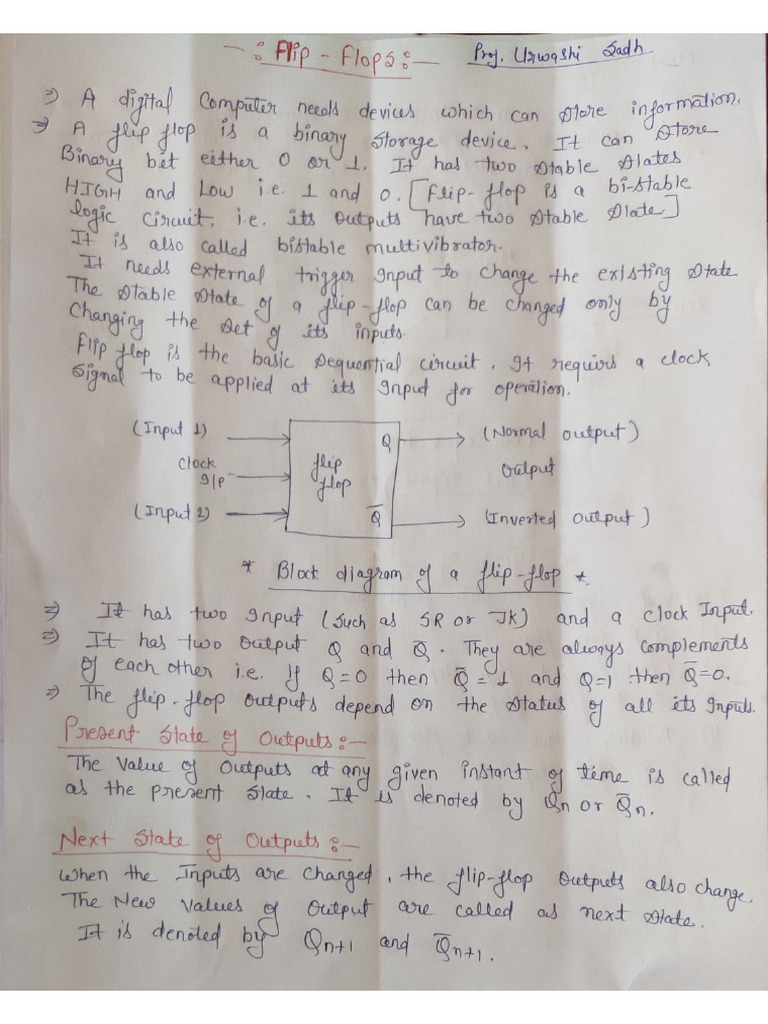 -: Flip - Flops:- Prof. Urwashi Sadh
⇒ A digital Computer needs devices which can store information.
⇒ A flip flop is a binary storage device. It can store
Binary bit either 0 or 1. It has two stable states
HIGH and Low i.e. 1 and 0. [Flip-flop is a bi-stable
logic circuit, i.e. its outputs have two stable state]
It is also called bistable multivibrator.
It needs external trigger input to change the existing state
The stable state of a flip-flop can be changed only by
changing the set of its inputs.
Flip flop is the basic sequential circuit. It requirs a clock
signal to be applied at its input for operation.
(Input 1) Q (Normal output)
clock I/P flip flop output
(Input 2) Q̅ (Inverted output)
* Block diagram of a flip-flop *
⇒ It has two Input (such as SR or JK) and a clock Input.
⇒ It has two output Q and Q̅. They are always complements
of each other i.e. if Q=0 then Q̅=1 and Q=1 then Q̅=0.
⇒ The flip-flop outputs depend on the status of all its inputs.
Present State of Outputs:-
The value of outputs at any given instant of time is called
as the present state. It is denoted by Qn or Q̅n.
Next State of Outputs:-
when the Inputs are changed, the flip-flop outputs also change.
The New values of output are called as next state.
It is denoted by Qn+1 and Q̅n+1.